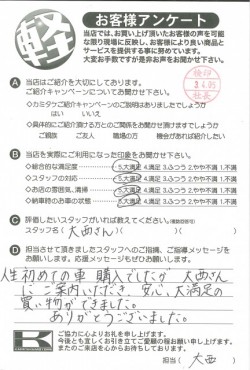 軽
お客様アンケート
当店では、お買い上げ頂いたお客様の声を可能
な限り現場に反映し、お客様により良い商品と
サービスを提供する事に努めています。
大変お手数ですが是非お声をお聞かせ下さい。
A 当店はご紹介を大切にしております。
ご紹介キャンペーンについてお聞かせ下さい。
◇カミタウンご紹介キャンペーンのご説明はありましたでしょうか
はい いいえ
◇具体的にご紹介頂ける方とのご関係をお聞かせ頂けますでしょうか
ご親族 ご友人 職場の方 機会があれば紹介したい
B 当店を実際にご利用になった印象をお聞かせ下さい。
◇総合的な満足度 5.大満足 4.満足 3.ふつう 2.やや不満 1.不満
◇スタッフの対応 5.大満足 4.満足 3.ふつう 2.やや不満 1.不満
◇お店の雰囲気、清掃 5.大満足 4.満足 3.ふつう 2.やや不満 1.不満
◇納車時のお車の状態 5.大満足 4.満足 3.ふつう 2.やや不満 1.不満
C 評価したいスタッフがいれば教えてください。(複数回答可)
スタッフ名( 大西さん )( )
D 担当させて頂きましたスタッフへのご指摘、ご指導メッセージを
お願いします。応援メッセージもぜひお願いします。
人生初めての車購入でしたが 大西さん
にご案内いただき、安心、大満足の
買い物ができました。
ありがとうございました。
ご協力に心よりお礼を申し上げます。
今後とも宜しくお引き立てご愛顧の程お願い申し上げます。
またのご来店を心からお待ちしております。
担当( 大西 )